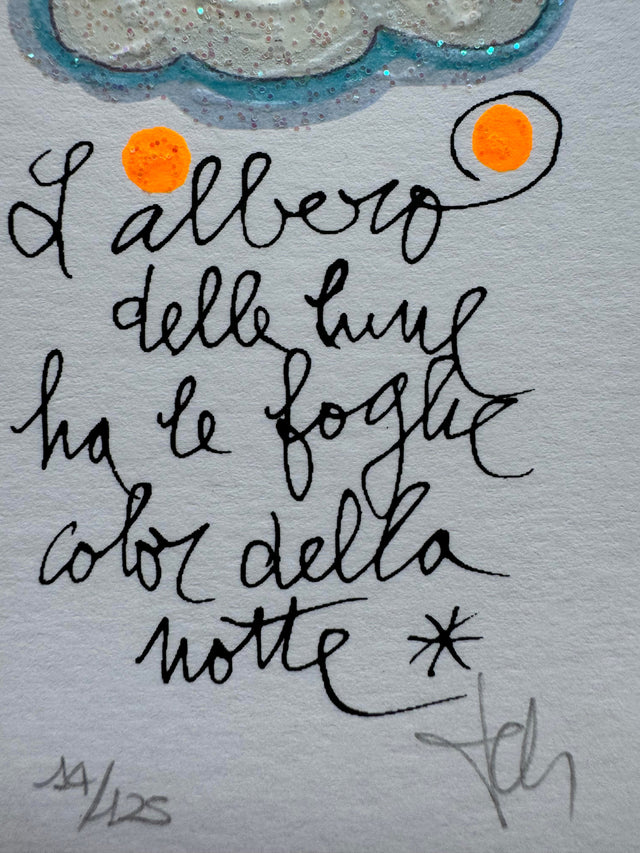 L'albero
delle lune
ha le foglie
color della
notte *
14/125